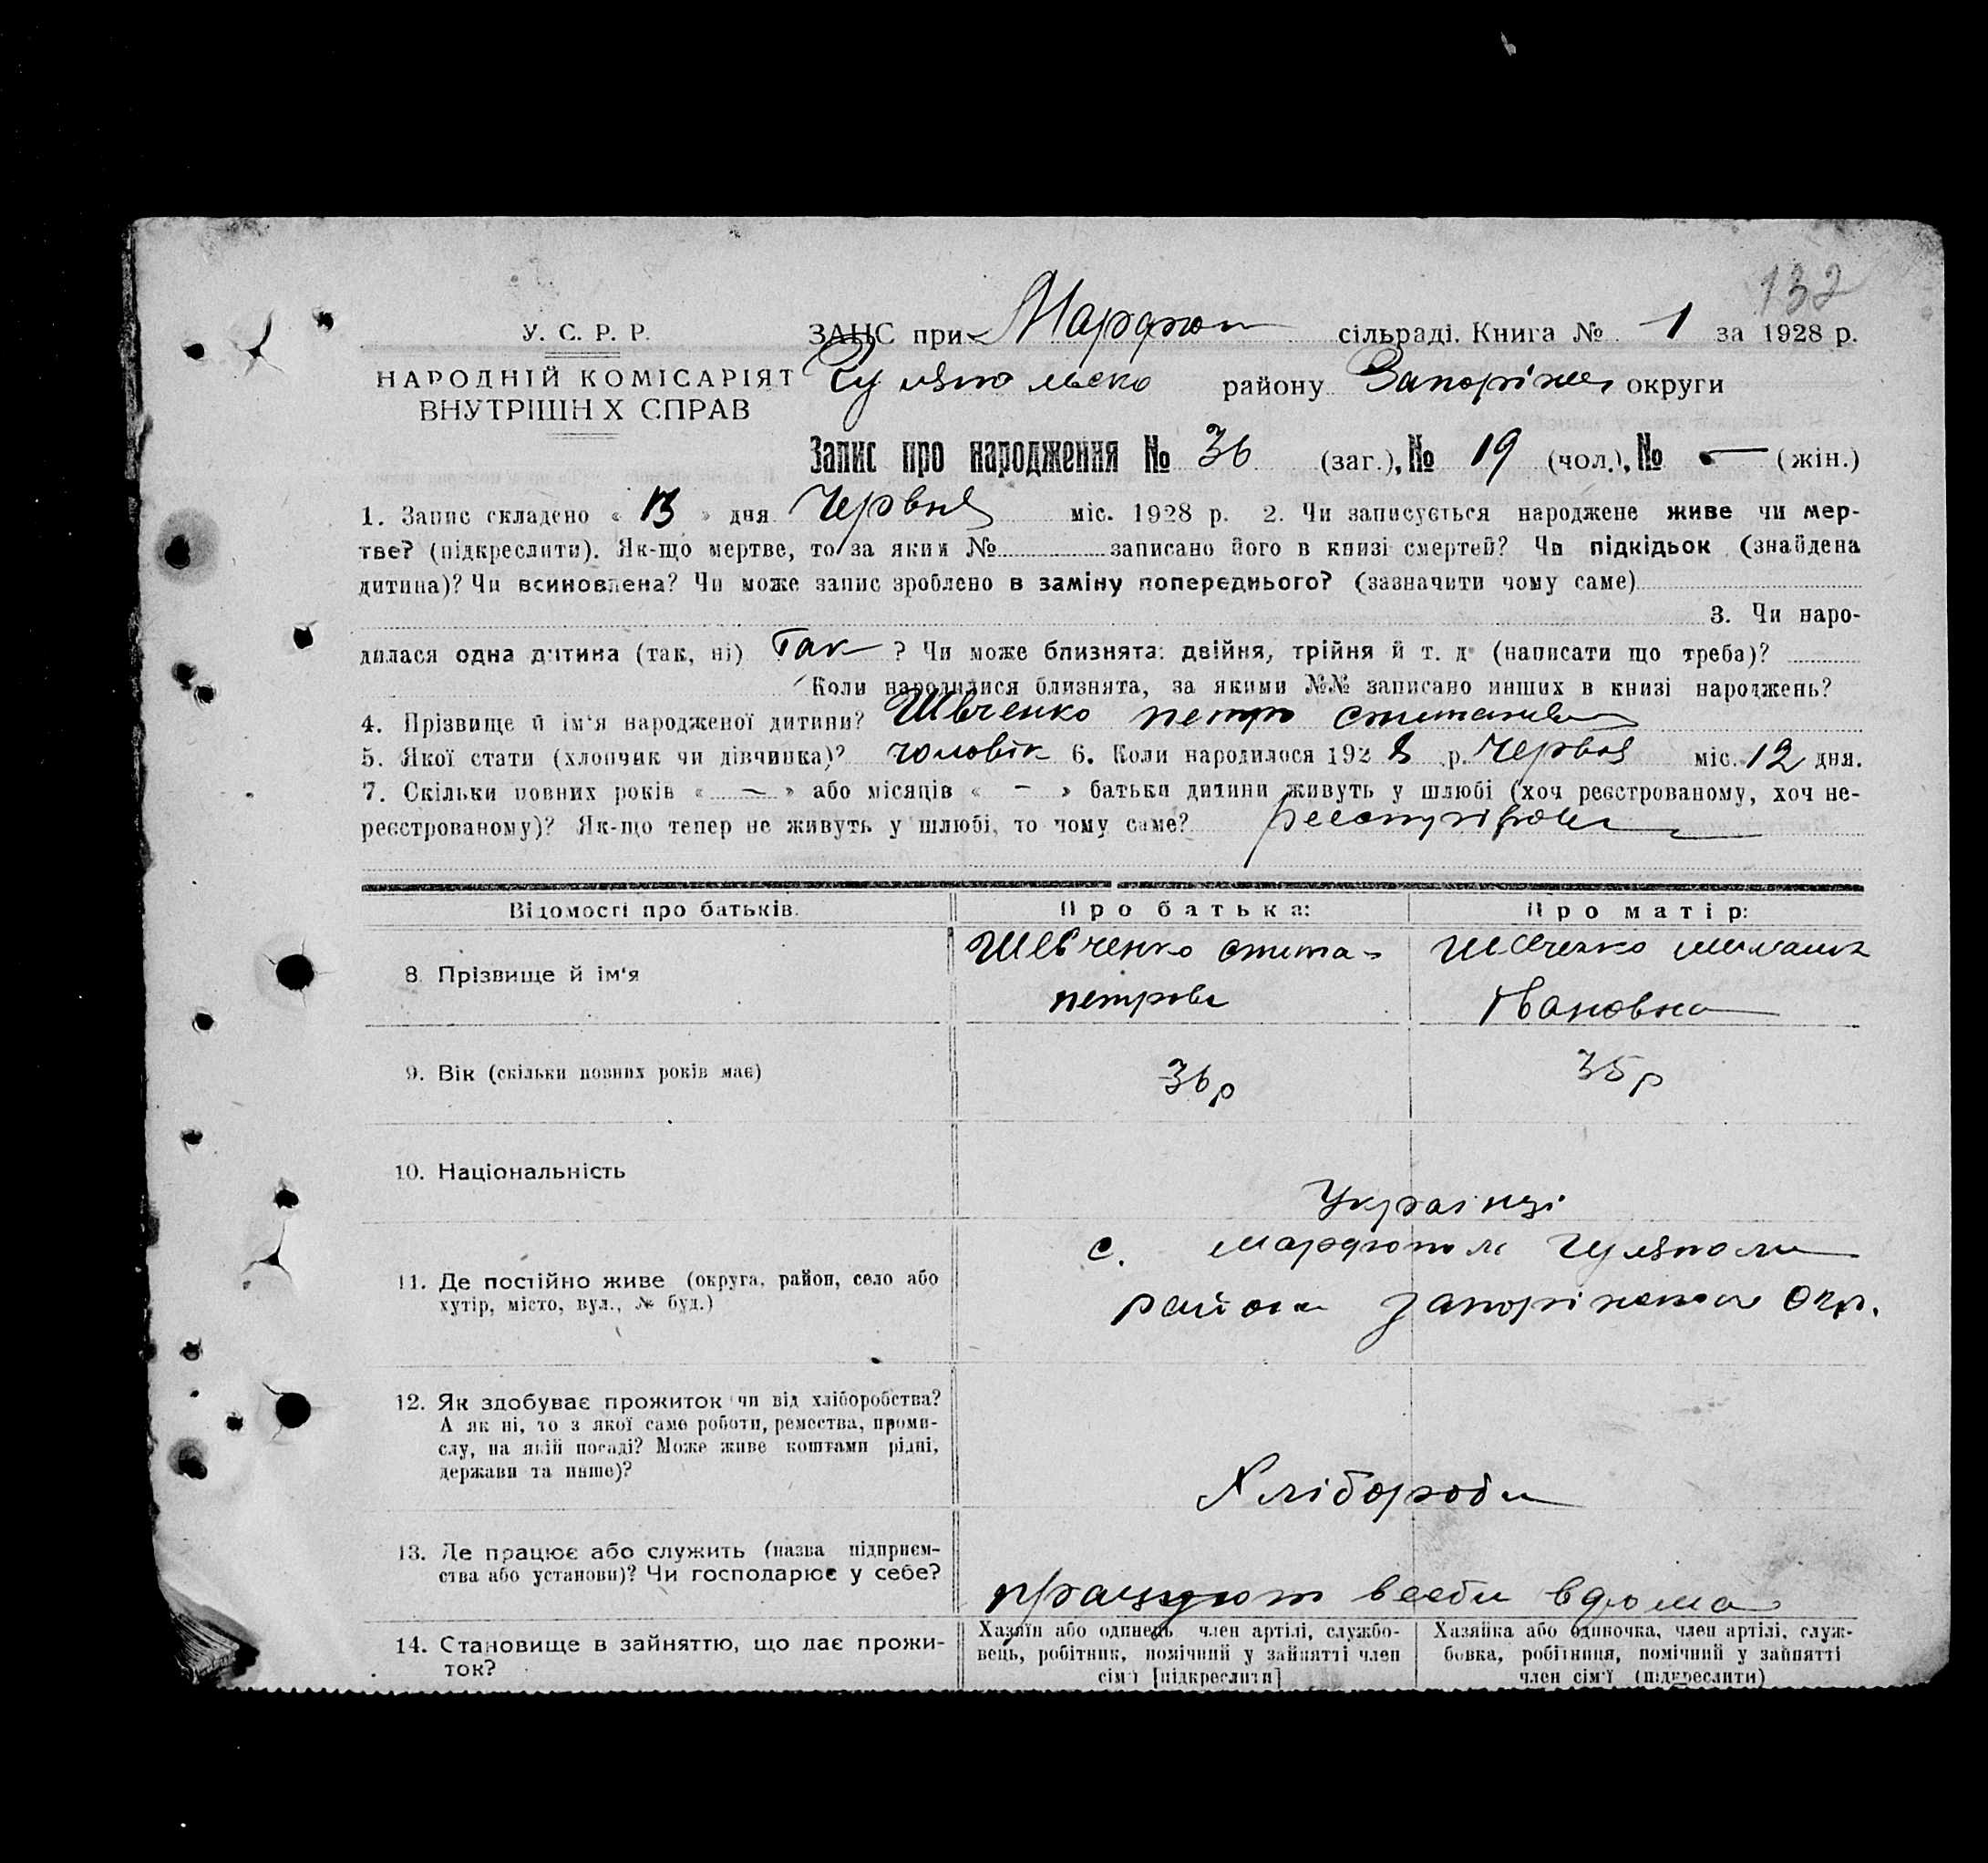 132
У. С. Р. Р.
ЗАНС при Марфоп сільраді. Книга № 1 за 1928 р.
НАРОДНІЙ КОМІСАРІЯТ
ВНУТРІШН Х СПРАВ
Гуляпольско району Запоріж округи
Запис про народження № 36 (заг.), № 19 (чол.), № — (жін.)
1. Запис складено « 13 » дня Червня міс. 1928 р. 2. Чи записується народжене живе чи мер-
тве? (підкреслити). Як-що мертве, то за яким № записано його в книзі смертей? Чи підкідьок (знайдена
дитина)? Чи всиновлена? Чи може запис зроблено в заміну попереднього? (зазначити чому саме)
3. Чи наро-
дилася одна дитина (так, ні) Так ? Чи може близнята: двійня, трійня й т. д. (написати що треба)?
Коли народилися близнята, за якими №№ записано инших в книзі народжень?
4. Прізвище й ім'я народженої дитини? Швченко петро
5. Якої стати (хлопчик чи дівчинка)? чоловік 6. Коли народилося 1928 р. Червня міс. 12 дня.
7. Скільки повних років « — » або місяців « — » батьки дитини живуть у шлюбі (хоч реєстрованому, хоч не-
реєстрованому)? Як-що тепер не живуть у шлюбі, то чому саме?
Відомості про батьків.
Про батька:
Про матір:
8. Прізвище й ім'я
Шевченко
петрови
Шевченко
Івановна
9. Вік (скільки повних років має)
36 р
35 р
10. Національність
Українці
11. Де постійно живе (округа, район, село або
хутір, місто, вул., № буд.)
с. марфополь Гуляполи
района Окр.
12. Як здобуває прожиток чи від хліборобства?
А як ні, то з якої саме роботи, ремества, проми-
слу, на якій посаді? Може живе коштами рідні,
держави та инше)?
Хлібороби
13. Де працює або служить (назва підприєм-
ства або установи)? Чи господарює у себе?
працуют всеби вдома
14. Становище в зайняттю, що дає прожи-
ток?
Хазяїн або одинець член артілі, службо-
вець, робітник, помічний у зайнятті член
сім'ї [підкреслити]
Хазяйка або одиночка, член артілі, служ-
бовка, робітниця, помічний у зайнятті
член сім'ї (підкреслити)